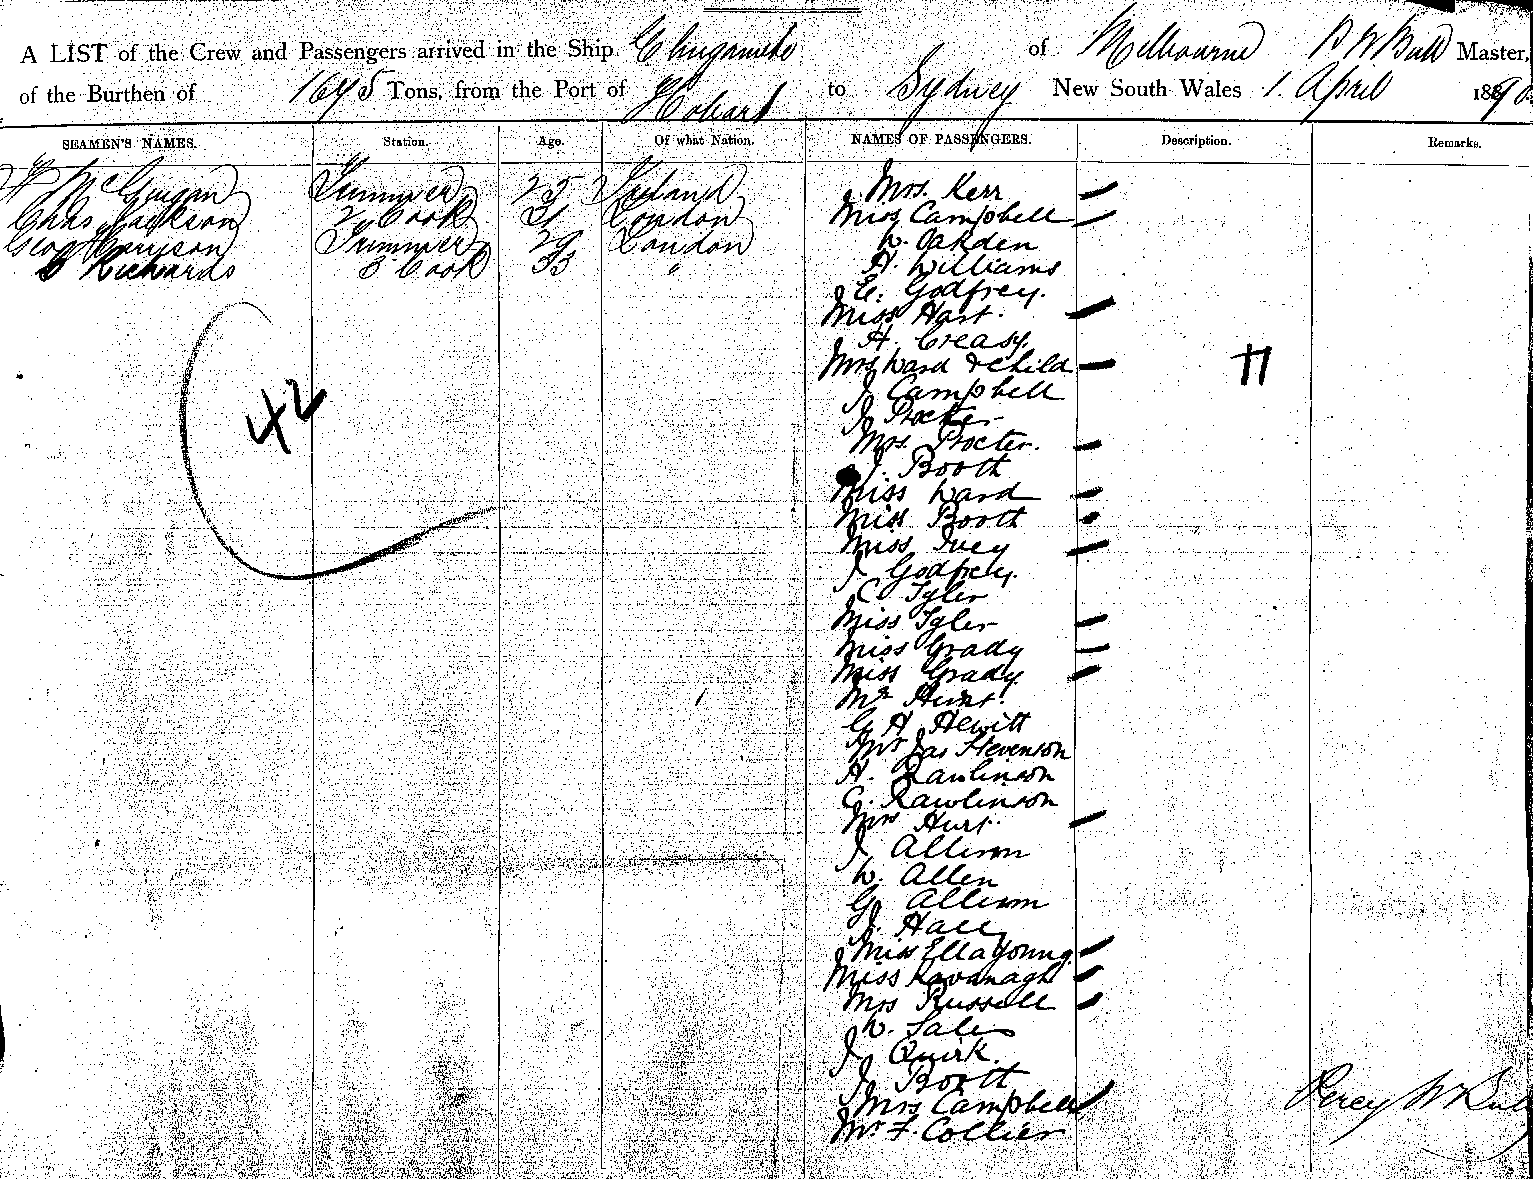 A LIST of the Crew and Passengers arrived in the Ship of Melbourne P W Bull Master,
of the Burthen of 1675 Tons, from the Port of Hobart to Sydney New South Wales 1. April 1890
SEAMEN'S NAMES. Station. Age. Of what Nation. NAMES OF PASSENGERS. Description. Remarks.
Trimmer 25 Ireland
Chas Jackson 2 Cook 21 London
Geo Trimmer 29 London
Richards 3 Cook 33 "
Mrs. Kerr
Miss Campbell
W. Oakden
A. Williams
E. Godfrey.
Miss Hart.
H. Creasy.
Mrs Ward & Child
J Campbell
J Procter
Mrs. Procter.
J. Booth
Miss Ward
Miss Booth
Miss Ivey
J Godfrey.
C Tyler
Miss Tyler
Miss Grady
Miss Grady
Mr Hunt.
G H Hewitt
Mr Jas Stevenson
H. Rawlinson
G. Rawlinson
Mrs Hurt
J Allison
W. Allen
G Allison
J. Hall
Miss Ella Young.
Miss Kavanagh
Mrs Russell
W. Sale
J Quirk.
J Booth
Mrs Campbell
Mr F. Collier
42
Percy W Bull